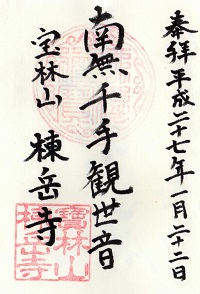 奉拝平成二十七年一月二十二日
南無千手観世音
宝林山 棟岳寺
寶林山
棟岳寺